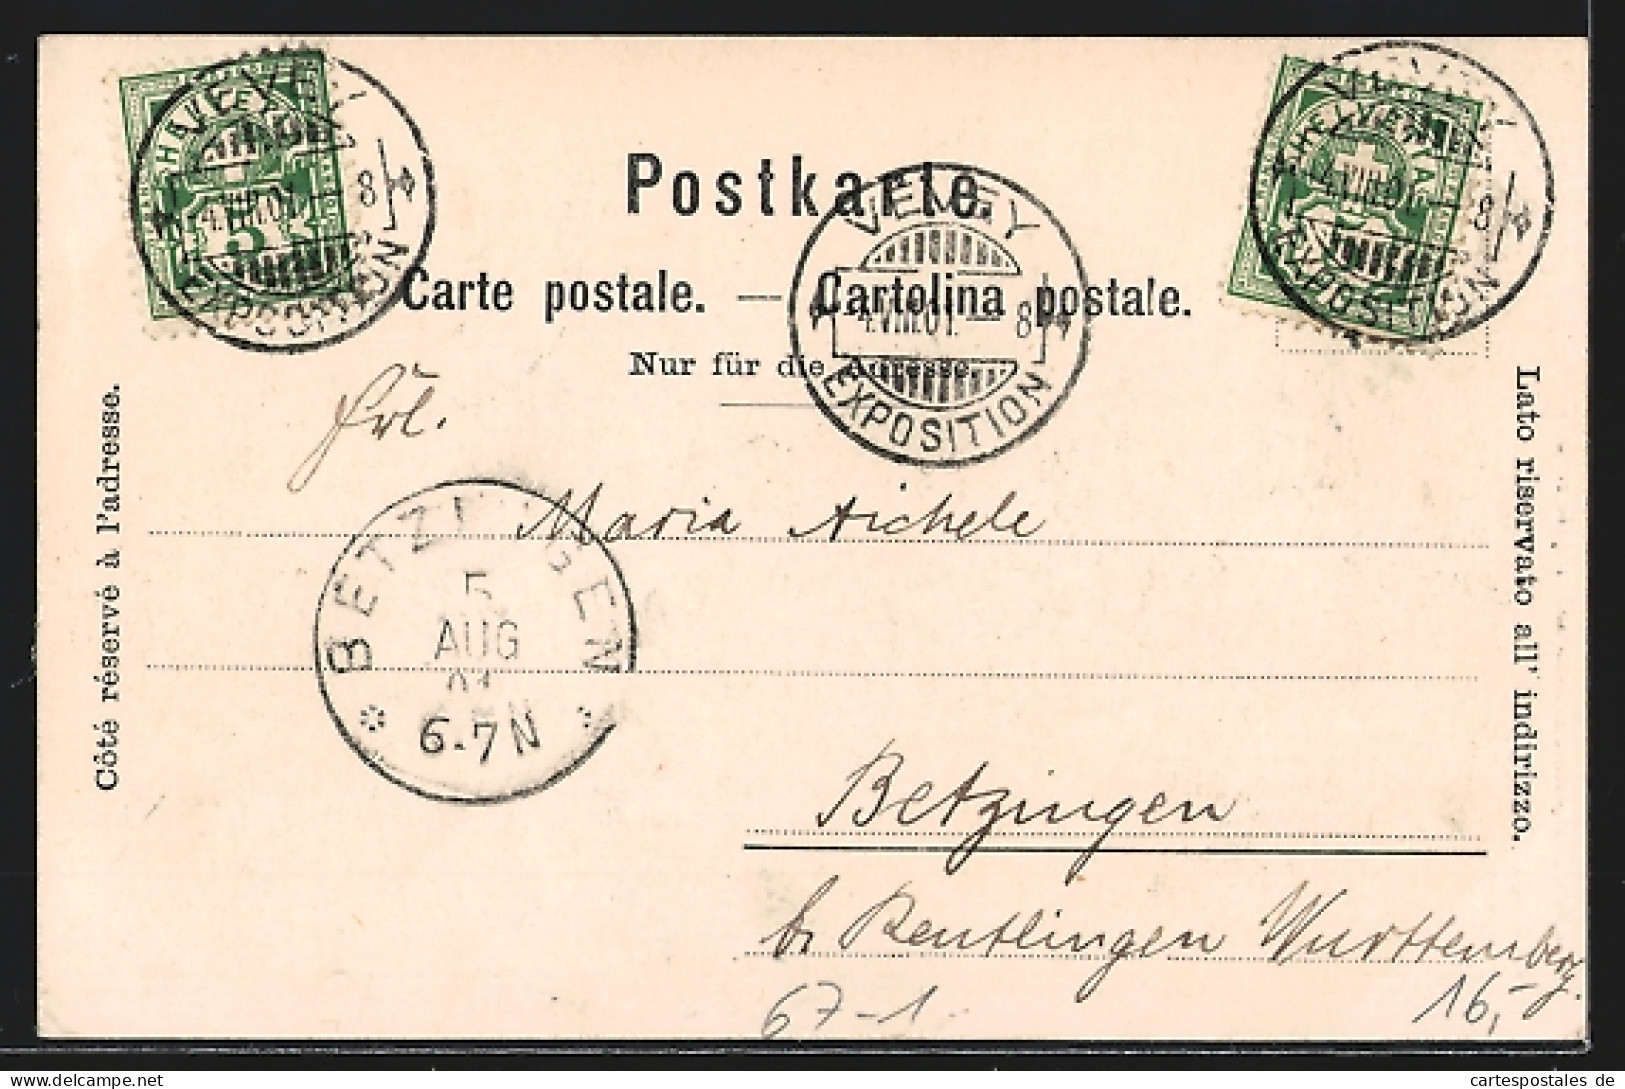 HELVETIA
5
VEVEY
4.VIII.01.—8
EXPOSITION
HELVETIA
VEVEY
4.VIII.01.—8
EXPOSITION
Postkarte.
VEVEY
4.VIII.01.—8
EXPOSITION
Carte postale. — Cartolina postale.
Nur für die Adresse.
Côté réservé à l'adresse.
Lato riservato all' indirizzo.
Frl.
Maria Aichele
BETZINGEN
5
AUG
01
6-7N
Betzingen
b. Reutlingen Württemberg.
67-1
16,-
cartespostales de